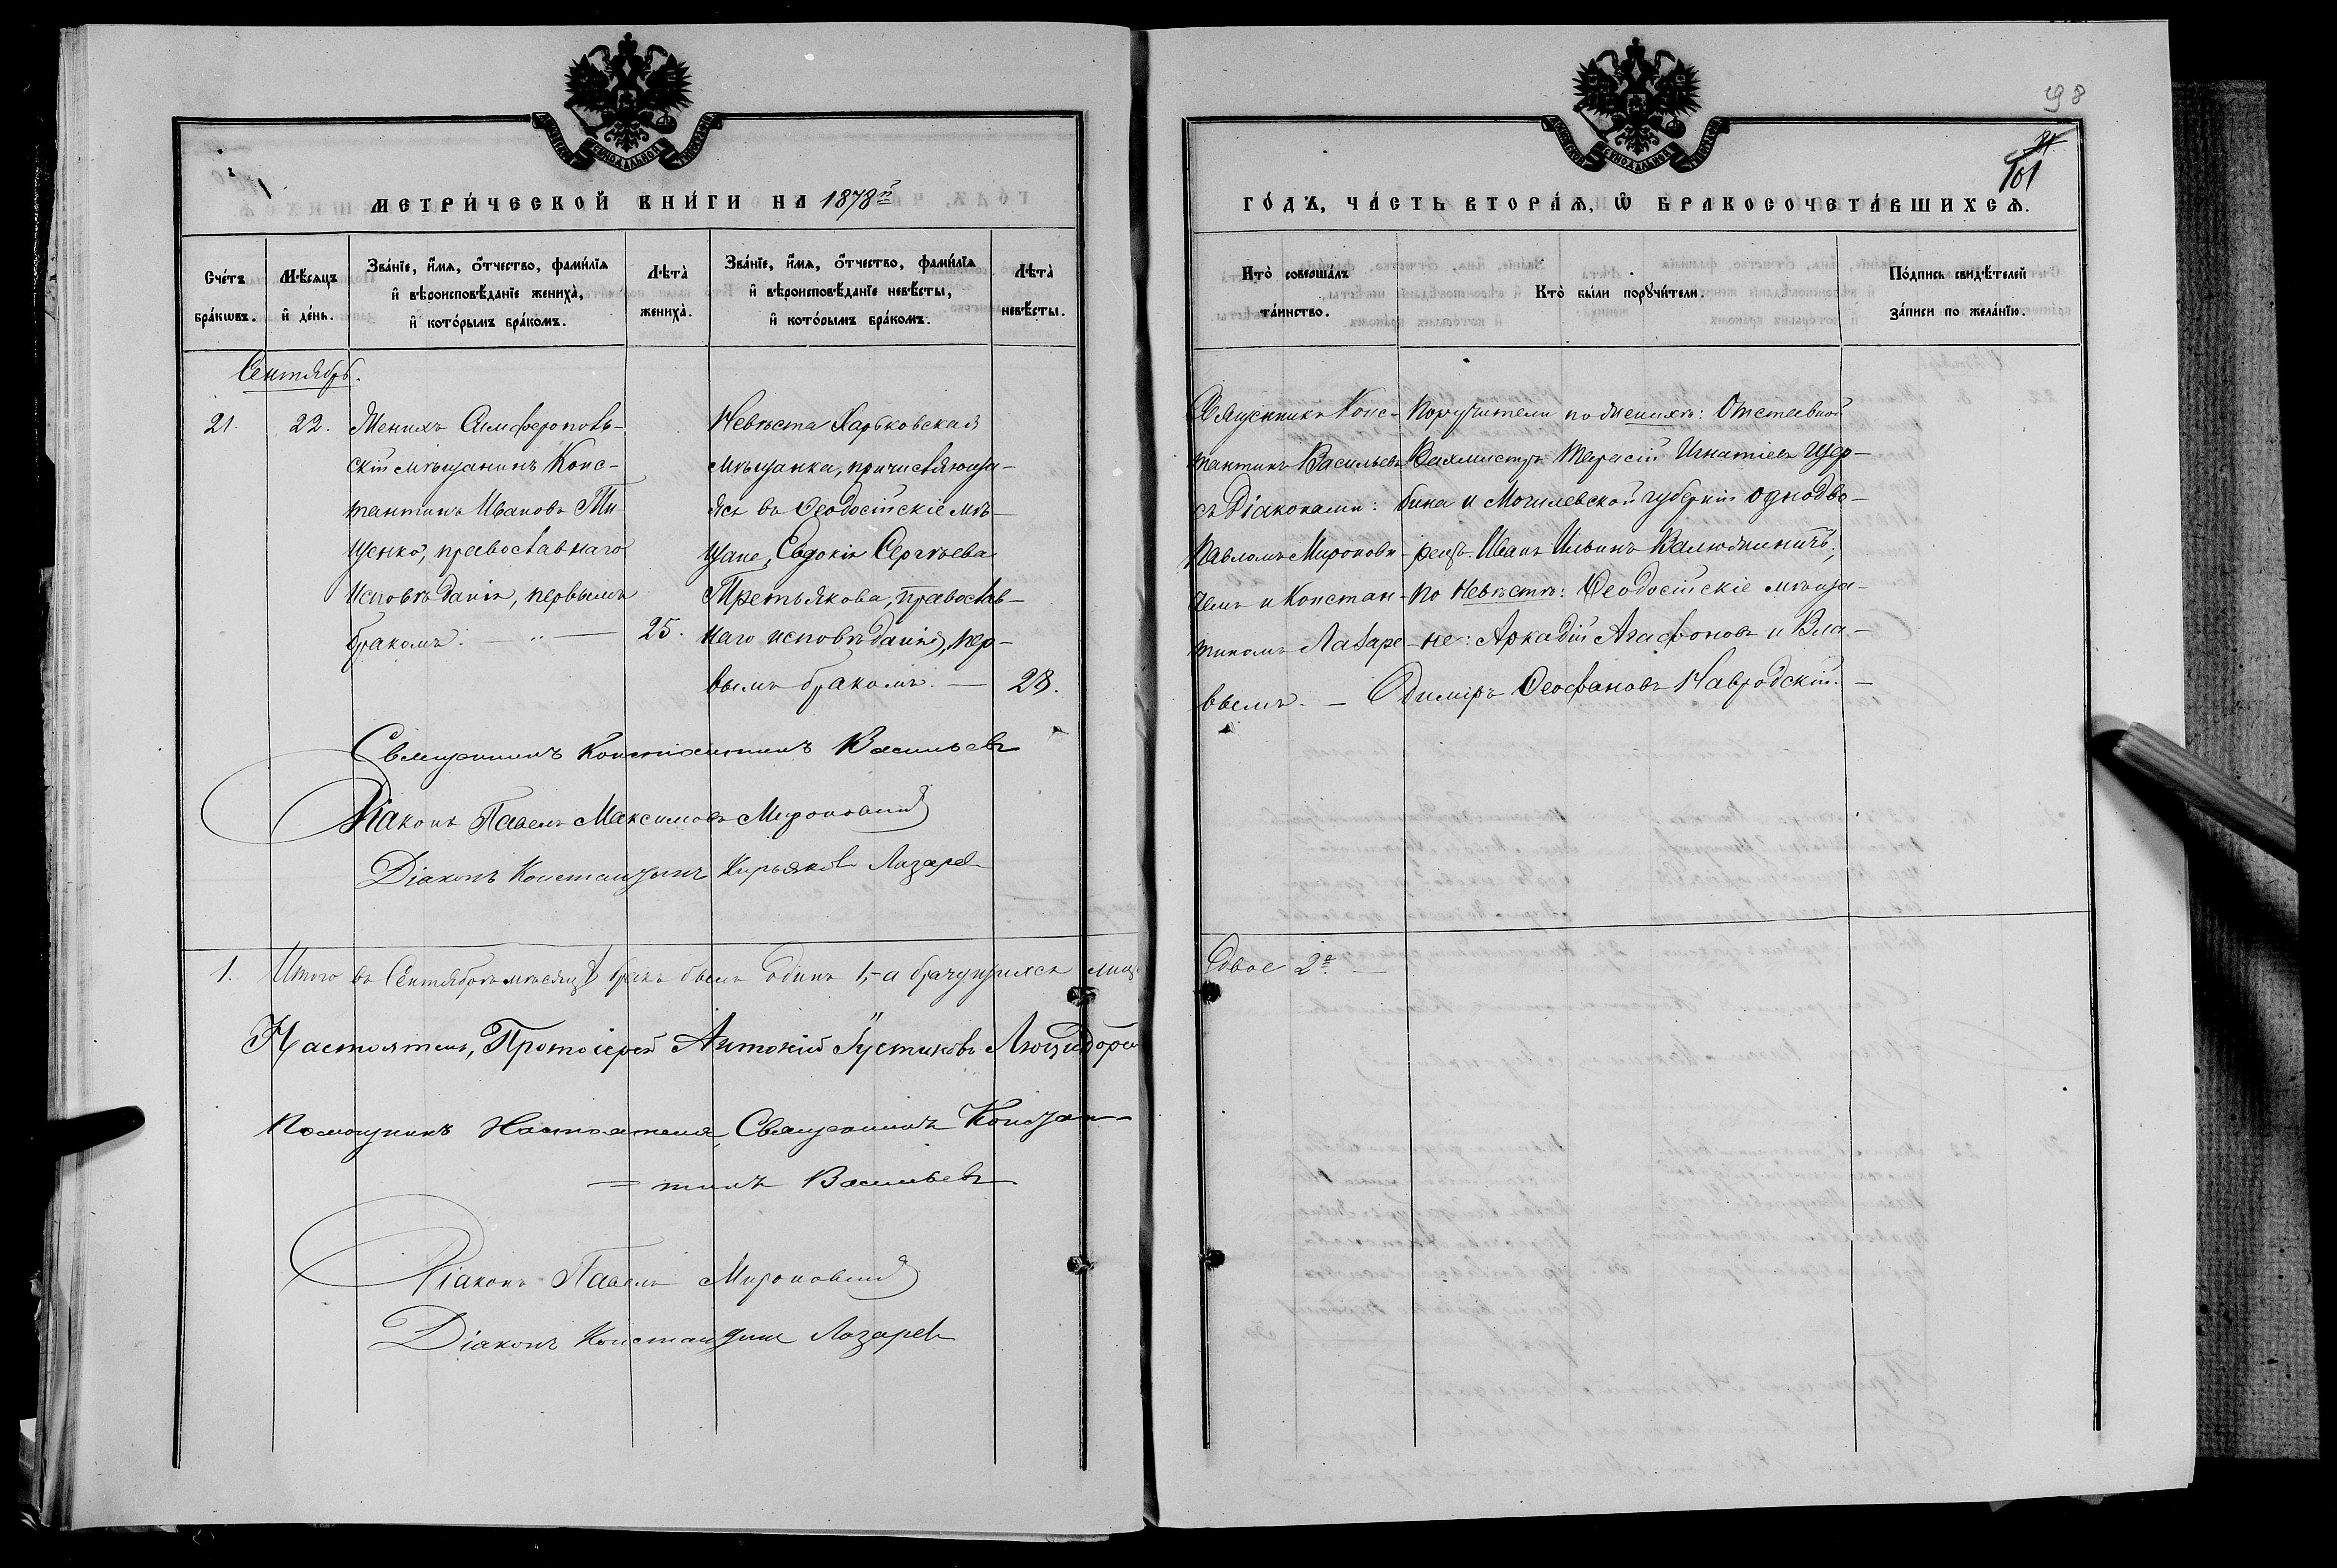 МЕТРИ́ЧЕСКОЙ КНИ́ГИ НА 1878й
Сче́тъ бра́кωвъ.
Мѣ́сяцъ и҆ де́нь.
Зва́нїе, и҆́мѧ, ѻ҆́тчество, фами́лїѧ и҆ вѣроисповѣ́данїе жениха̀, и҆ кото́рымъ бра́комъ.
Лѣта̀ жениха̀.
Зва́нїе, и҆́мѧ, ѻ҆́тчество, фами́лїѧ и҆ вѣроисповѣ́данїе невѣ́сты, и҆ кото́рымъ бра́комъ.
Лѣта̀ невѣ́сты.
Сентябрь.
21.
22.
Женихъ Симферополь-
скій мѣщанинъ Конс-
тантинъ Ивановъ Ти-
щенко, православнаго
исповѣданія, первымъ
бракомъ.
25.
Невѣста Харьковская
мѣщанка, причисляюща-
яся въ Ѳеодосійскіе мѣ-
щане, Евдокія Сергѣева
Третьякова, православ-
наго исповѣданія, пер-
вымъ бракомъ. —
28.
Священникъ Константинъ Васильевъ
Діаконъ Павелъ Максимовъ Мироновичъ
Діаконъ Константинъ Кирьяковъ Лазаревъ
1. Итого въ Сентябрѣ мѣсяцѣ бракъ былъ одинъ 1,-а брачущихся лицъ
Настоятель, Протоіерей Антоній Іустиновъ
Помощникъ Настоятеля, Священникъ Констан-
= тинъ Васильевъ
Діаконъ Павелъ Мироновичъ
Діаконъ Константинъ Лазаревъ
98
101
ГО́ДЪ, ЧА́СТЬ ВТОРА́Ѧ, Ѡ҆ БРАКОСОЧЕТА́ВШИХСѦ.
Кто̀ соверша́лъ та́инство.
Кто̀ бы́ли порꙋчи́тели.
По́дпись свидѣ́телей за́писи по жела́нїю.
Священникъ Конс-
тантинъ Васильевъ
съ Діаконами:
Павломъ Миронови-
чемъ и Констан-
тиномъ Лазаре-
вымъ. —
Поручители по женихѣ: Отставной
Вахмистръ Тарасій Игнатіевъ Щер-
бина и Могилевской губерніи однодво-
рецъ Иванъ Ильинъ Валюжиничъ;
по невѣстѣ: Ѳеодосійскіе мѣща-
не: Аркадій Агафоновъ и Вла-
димиръ Ѳеофановъ Навродскій. —
двое 2е. —